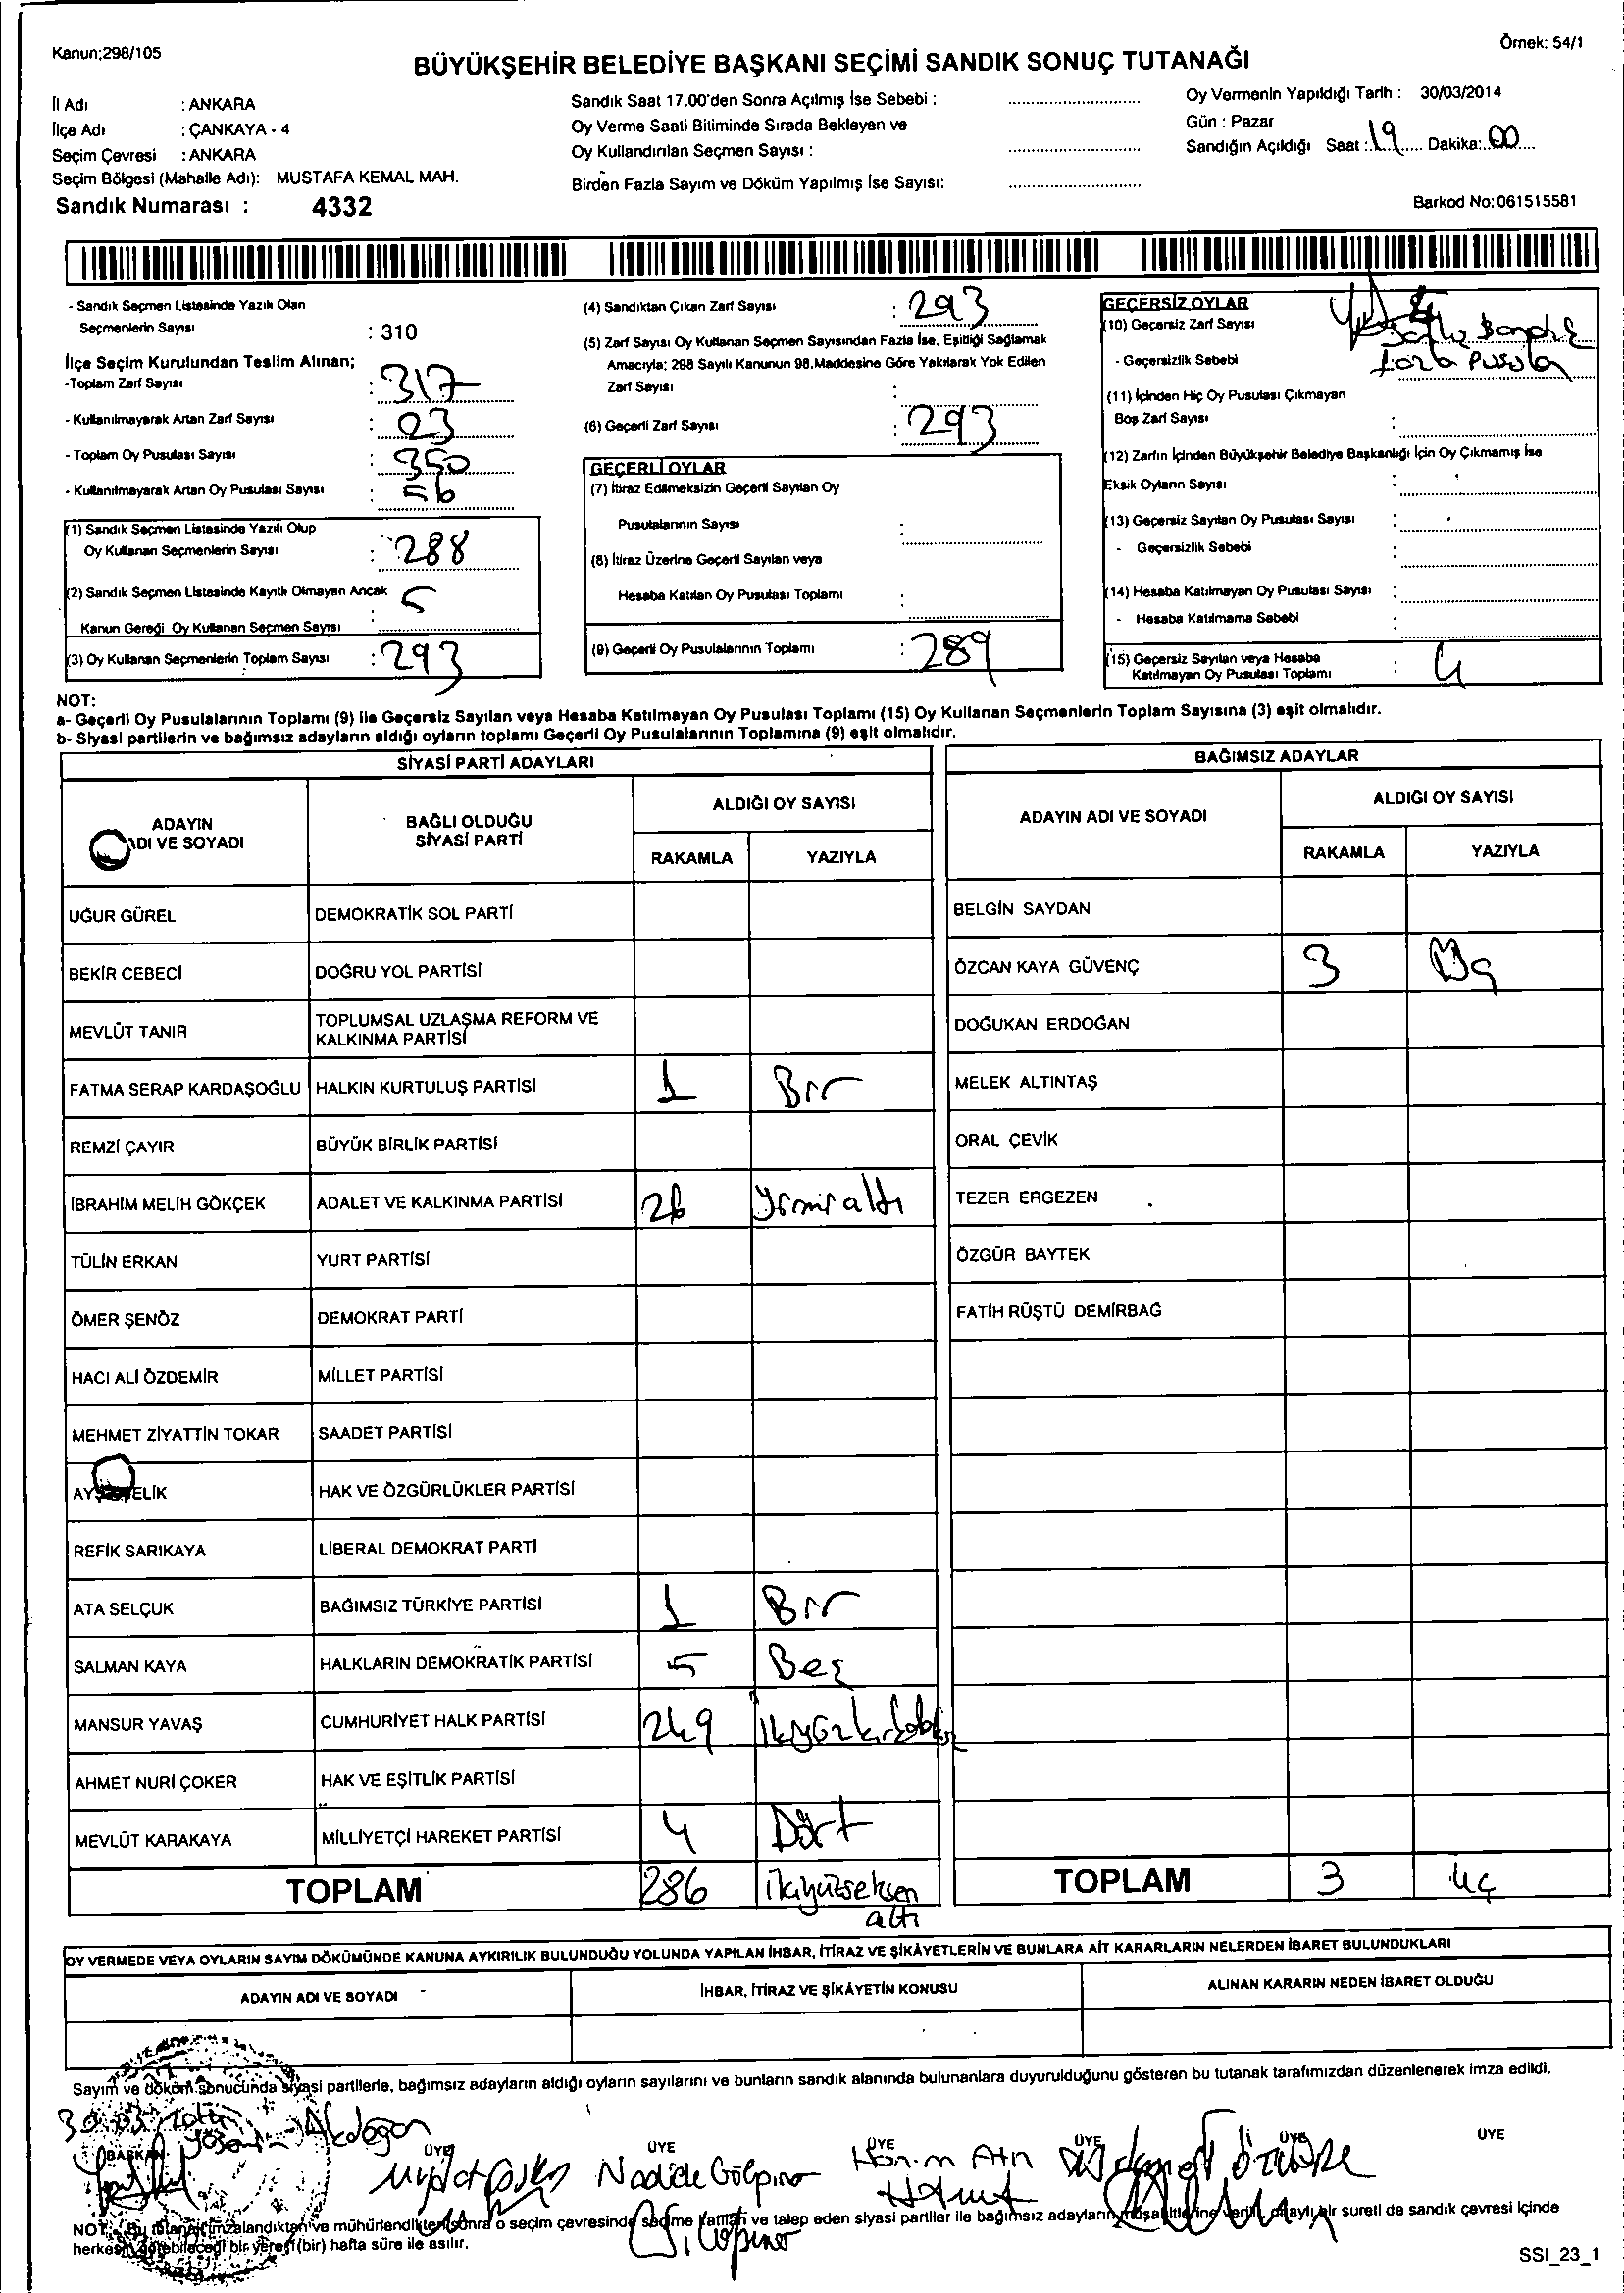 Kanun:298/105
Örnek: 54/1
BÜYÜKŞEHİR BELEDİYE BAŞKANI SEÇİMİ SANDIK SONUÇ TUTANAĞI
İl Adı : ANKARA
İlçe Adı : ÇANKAYA - 4
Seçim Çevresi : ANKARA
Seçim Bölgesi (Mahalle Adı): MUSTAFA KEMAL MAH.
Sandık Numarası : 4332
Sandık Saat 17.00'den Sonra Açılmış İse Sebebi :
Oy Verme Saati Bitiminde Sırada Bekleyen ve
Oy Kullandırılan Seçmen Sayısı :
Birden Fazla Sayım ve Döküm Yapılmış İse Sayısı:
Oy Vermenin Yapıldığı Tarih : 30/03/2014
Gün : Pazar
Sandığın Açıldığı Saat : 19 Dakika: 00
Barkod No:061515581
- Sandık Seçmen Listesinde Yazılı Olan
Seçmenlerin Sayısı : 310
İlçe Seçim Kurulundan Teslim Alınan;
-Toplam Zarf Sayısı : 317
- Kullanılmayarak Artan Zarf Sayısı : 23
- Toplam Oy Pusulası Sayısı : 350
- Kullanılmayarak Artan Oy Pusulası Sayısı : 56
(1) Sandık Seçmen Listesinde Yazılı Olup
Oy Kullanan Seçmenlerin Sayısı : 288
(2) Sandık Seçmen Listesinde Kayıtlı Olmayan Ancak
Kanun Gereği Oy Kullanan Seçmen Sayısı : 5
(3) Oy Kullanan Seçmenlerin Toplam Sayısı : 293
(4) Sandıktan Çıkan Zarf Sayısı : 293
(5) Zarf Sayısı Oy Kullanan Seçmen Sayısından Fazla İse, Eşitliği Sağlamak
Amacıyla; 298 Sayılı Kanunun 98.Maddesine Göre Yakılarak Yok Edilen
Zarf Sayısı :
(6) Geçerli Zarf Sayısı : 293
GEÇERLİ OYLAR
(7) İtiraz Edilmeksizin Geçerli Sayılan Oy
Pusulalarının Sayısı :
(8) İtiraz Üzerine Geçerli Sayılan veya
Hesaba Katılan Oy Pusulası Toplamı :
(9) Geçerli Oy Pusulalarının Toplamı : 289
GEÇERSİZ OYLAR
(10) Geçersiz Zarf Sayısı
- Geçersizlik Sebebi fazla pusula
(11) İçinden Hiç Oy Pusulası Çıkmayan
Boş Zarf Sayısı :
(12) Zarfın İçinden Büyükşehir Belediye Başkanlığı İçin Oy Çıkmamış İse
Eksik Oyların Sayısı :
(13) Geçersiz Sayılan Oy Pusulası Sayısı :
- Geçersizlik Sebebi :
(14) Hesaba Katılmayan Oy Pusulası Sayısı :
- Hesaba Katılmama Sebebi :
(15) Geçersiz Sayılan veya Hesaba
Katılmayan Oy Pusulası Toplamı : 4
NOT:
a- Geçerli Oy Pusulalarının Toplamı (9) ile Geçersiz Sayılan veya Hesaba Katılmayan Oy Pusulası Toplamı (15) Oy Kullanan Seçmenlerin Toplam Sayısına (3) eşit olmalıdır.
b- Siyasi partilerin ve bağımsız adayların aldığı oyların toplamı Geçerli Oy Pusulalarının Toplamına (9) eşit olmalıdır.
SİYASİ PARTİ ADAYLARI
ADAYIN ADI VE SOYADI
BAĞLI OLDUĞU SİYASİ PARTİ
ALDIĞI OY SAYISI
RAKAMLA YAZIYLA
UĞUR GÜREL DEMOKRATİK SOL PARTİ
BEKİR CEBECİ DOĞRU YOL PARTİSİ
MEVLÜT TANIR TOPLUMSAL UZLAŞMA REFORM VE KALKINMA PARTİSİ
FATMA SERAP KARDAŞOĞLU HALKIN KURTULUŞ PARTİSİ 1 Bir
REMZİ ÇAYIR BÜYÜK BİRLİK PARTİSİ
İBRAHİM MELİH GÖKÇEK ADALET VE KALKINMA PARTİSİ 26 Yirmi altı
TÜLİN ERKAN YURT PARTİSİ
ÖMER ŞENÖZ DEMOKRAT PARTİ
HACI ALİ ÖZDEMİR MİLLET PARTİSİ
MEHMET ZİYATTİN TOKAR SAADET PARTİSİ
HAK VE ÖZGÜRLÜKLER PARTİSİ
REFİK SARIKAYA LİBERAL DEMOKRAT PARTİ
ATA SELÇUK BAĞIMSIZ TÜRKİYE PARTİSİ 1 Bir
SALMAN KAYA HALKLARIN DEMOKRATİK PARTİSİ 5 Beş
MANSUR YAVAŞ CUMHURİYET HALK PARTİSİ 249
AHMET NURİ ÇOKER HAK VE EŞİTLİK PARTİSİ
MEVLÜT KARAKAYA MİLLİYETÇİ HAREKET PARTİSİ 4 Dört
TOPLAM 286 ikiyüzseksen altı
BAĞIMSIZ ADAYLAR
ADAYIN ADI VE SOYADI
ALDIĞI OY SAYISI
RAKAMLA YAZIYLA
BELGİN SAYDAN
ÖZCAN KAYA GÜVENÇ 3 Üç
DOĞUKAN ERDOĞAN
MELEK ALTINTAŞ
ORAL ÇEVİK
TEZER ERGEZEN
ÖZGÜR BAYTEK
FATİH RÜŞTÜ DEMİRBAĞ
TOPLAM 3 üç
OY VERMEDE VEYA OYLARIN SAYIM DÖKÜMÜNDE KANUNA AYKIRILIK BULUNDUĞU YOLUNDA YAPILAN İHBAR, İTİRAZ VE ŞİKÂYETLERİN VE BUNLARA AİT KARARLARIN NELERDEN İBARET BULUNDUKLARI
ADAYIN ADI VE SOYADI
İHBAR, İTİRAZ VE ŞİKÂYETİN KONUSU
ALINAN KARARIN NEDEN İBARET OLDUĞU
Sayım ve döküm sonucunda siyasi partilerle, bağımsız adayların aldığı oyların sayılarını ve bunların sandık alanında bulunanlara duyurulduğunu gösteren bu tutanak tarafımızdan düzenlenerek imza edildi.
30.03.2014
Akdoğan
BAŞKAN ÜYE ÜYE ÜYE ÜYE ÜYE ÜYE
Nadide Gölpınar
NOT: Bu tutanak imzalandıktan ve mühürlendikten sonra o seçim çevresinde seçime katılan ve talep eden siyasi partiler ile bağımsız adayların müşahitlerine verilir, onaylı bir sureti de sandık çevresi içinde
herkesin görebileceği bir yere (bir) hafta süre ile asılır.
SSI_23_1